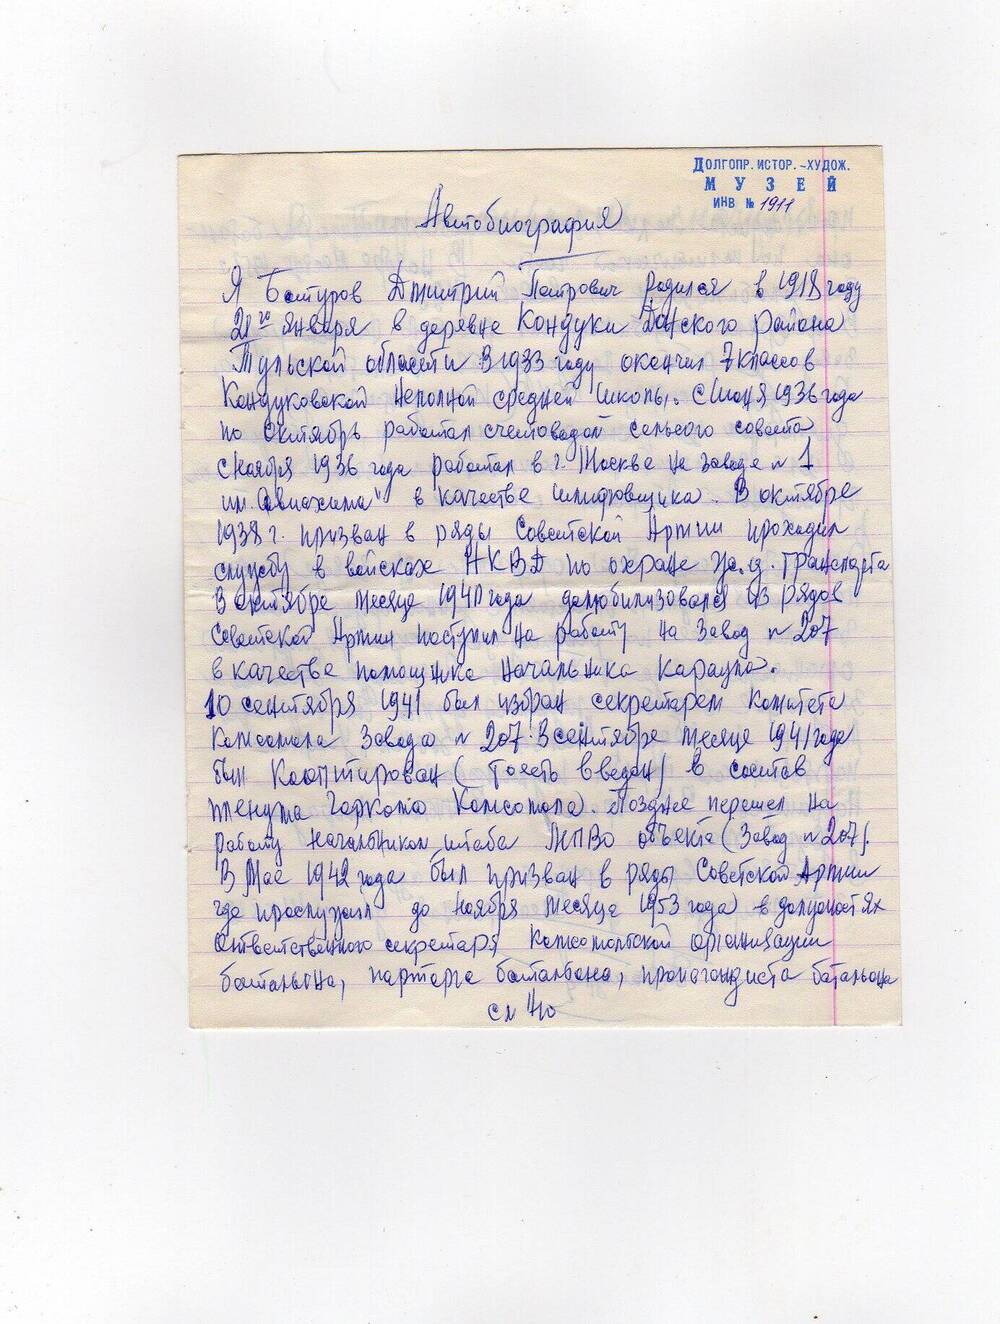 ДОЛГОПР. ИСТОР.-ХУДОЖ.
МУЗЕЙ
ИНВ № 1911
Автобиография
Я Батуров Дмитрий Петрович родился в 1918 году
21го января в деревне Кондуки Донского района
Тульской области В 1933 году окончил 7 классов
Кондуковской неполной средней школы. С июня 1936 года
по октябрь работал счетоводом сельсого совета
с ноября 1936 года работал в г. Москве на заводе № 1
им. Авиахима" в качестве шлифовщика. В октябре
1938 г. призван в ряды Советской Армии проходил
службу в войсках НКВД по охране ж.д. транспорта
В октябре месяце 1940 года демобилизовался из рядов
Советской Армии поступил на работу на завод № 207
в качестве помощника начальника караула.
10 сентября 1941 был избран секретарем комитета
комсомола завода № 207. В сентябре месяце 1941 года
был кооптирован (тоесть введен) в состав
пленума Горкома Комсомола. Позднее перешел на
работу начальником штаба МПВО объекта (завод № 207).
В мае 1942 года был призван в ряды Советской Армии
где прослужил до ноября месяца 1953 года в должностях
ответственного секретаря комсомольской организации
батальона, парторга батальона, пропагандиста батальона
см н/о